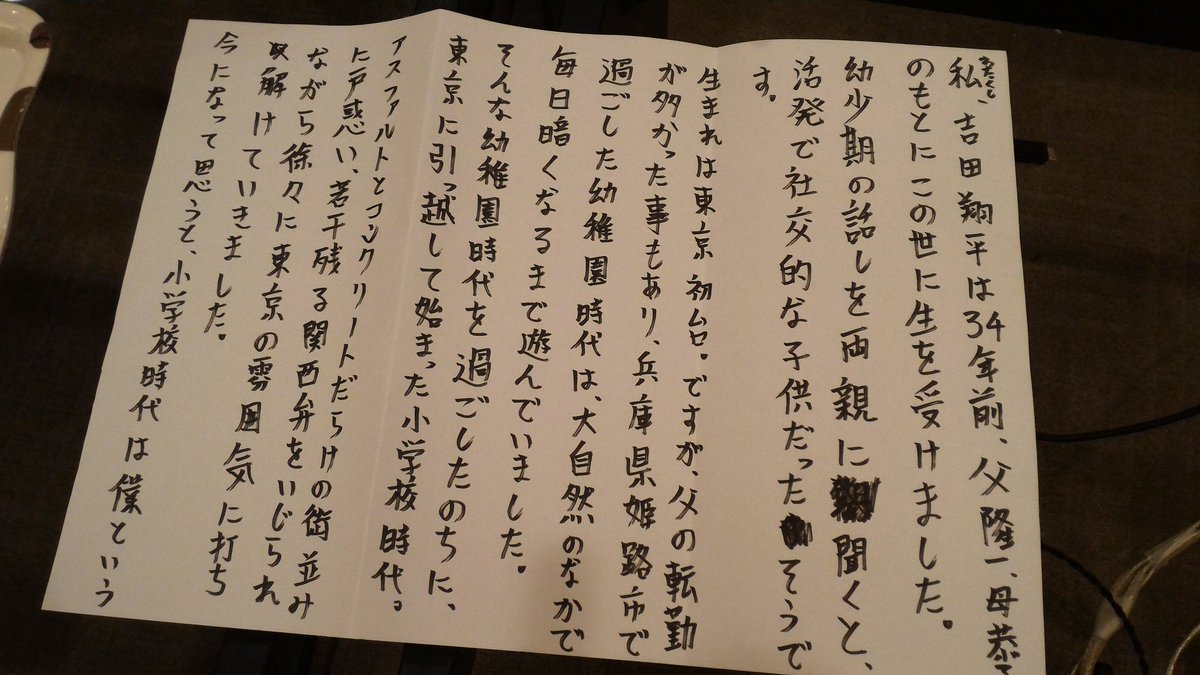 わたくし
私、吉田翔平は34年前、父隆一、母恭子
のもとにこの世に生を受けました。
幼少期の話しを両親に聞くと、
活発で社交的な子供だったそうで
す。
生まれは東京初台。ですが、父の転勤
が多かった事もあり、兵庫県姫路市で
過ごした幼稚園時代は、大自然のなかで
毎日暗くなるまで遊んでいました。
そんな幼稚園時代を過ごしたのちに、
東京に引っ越して始まった小学校時代。
アスファルトとコンクリートだらけの街並み
に戸惑い、若干残る関西弁をいじられ
ながら徐々に東京の雰囲気に打ち
解けていきました。
今になって思うと、小学校時代は僕という